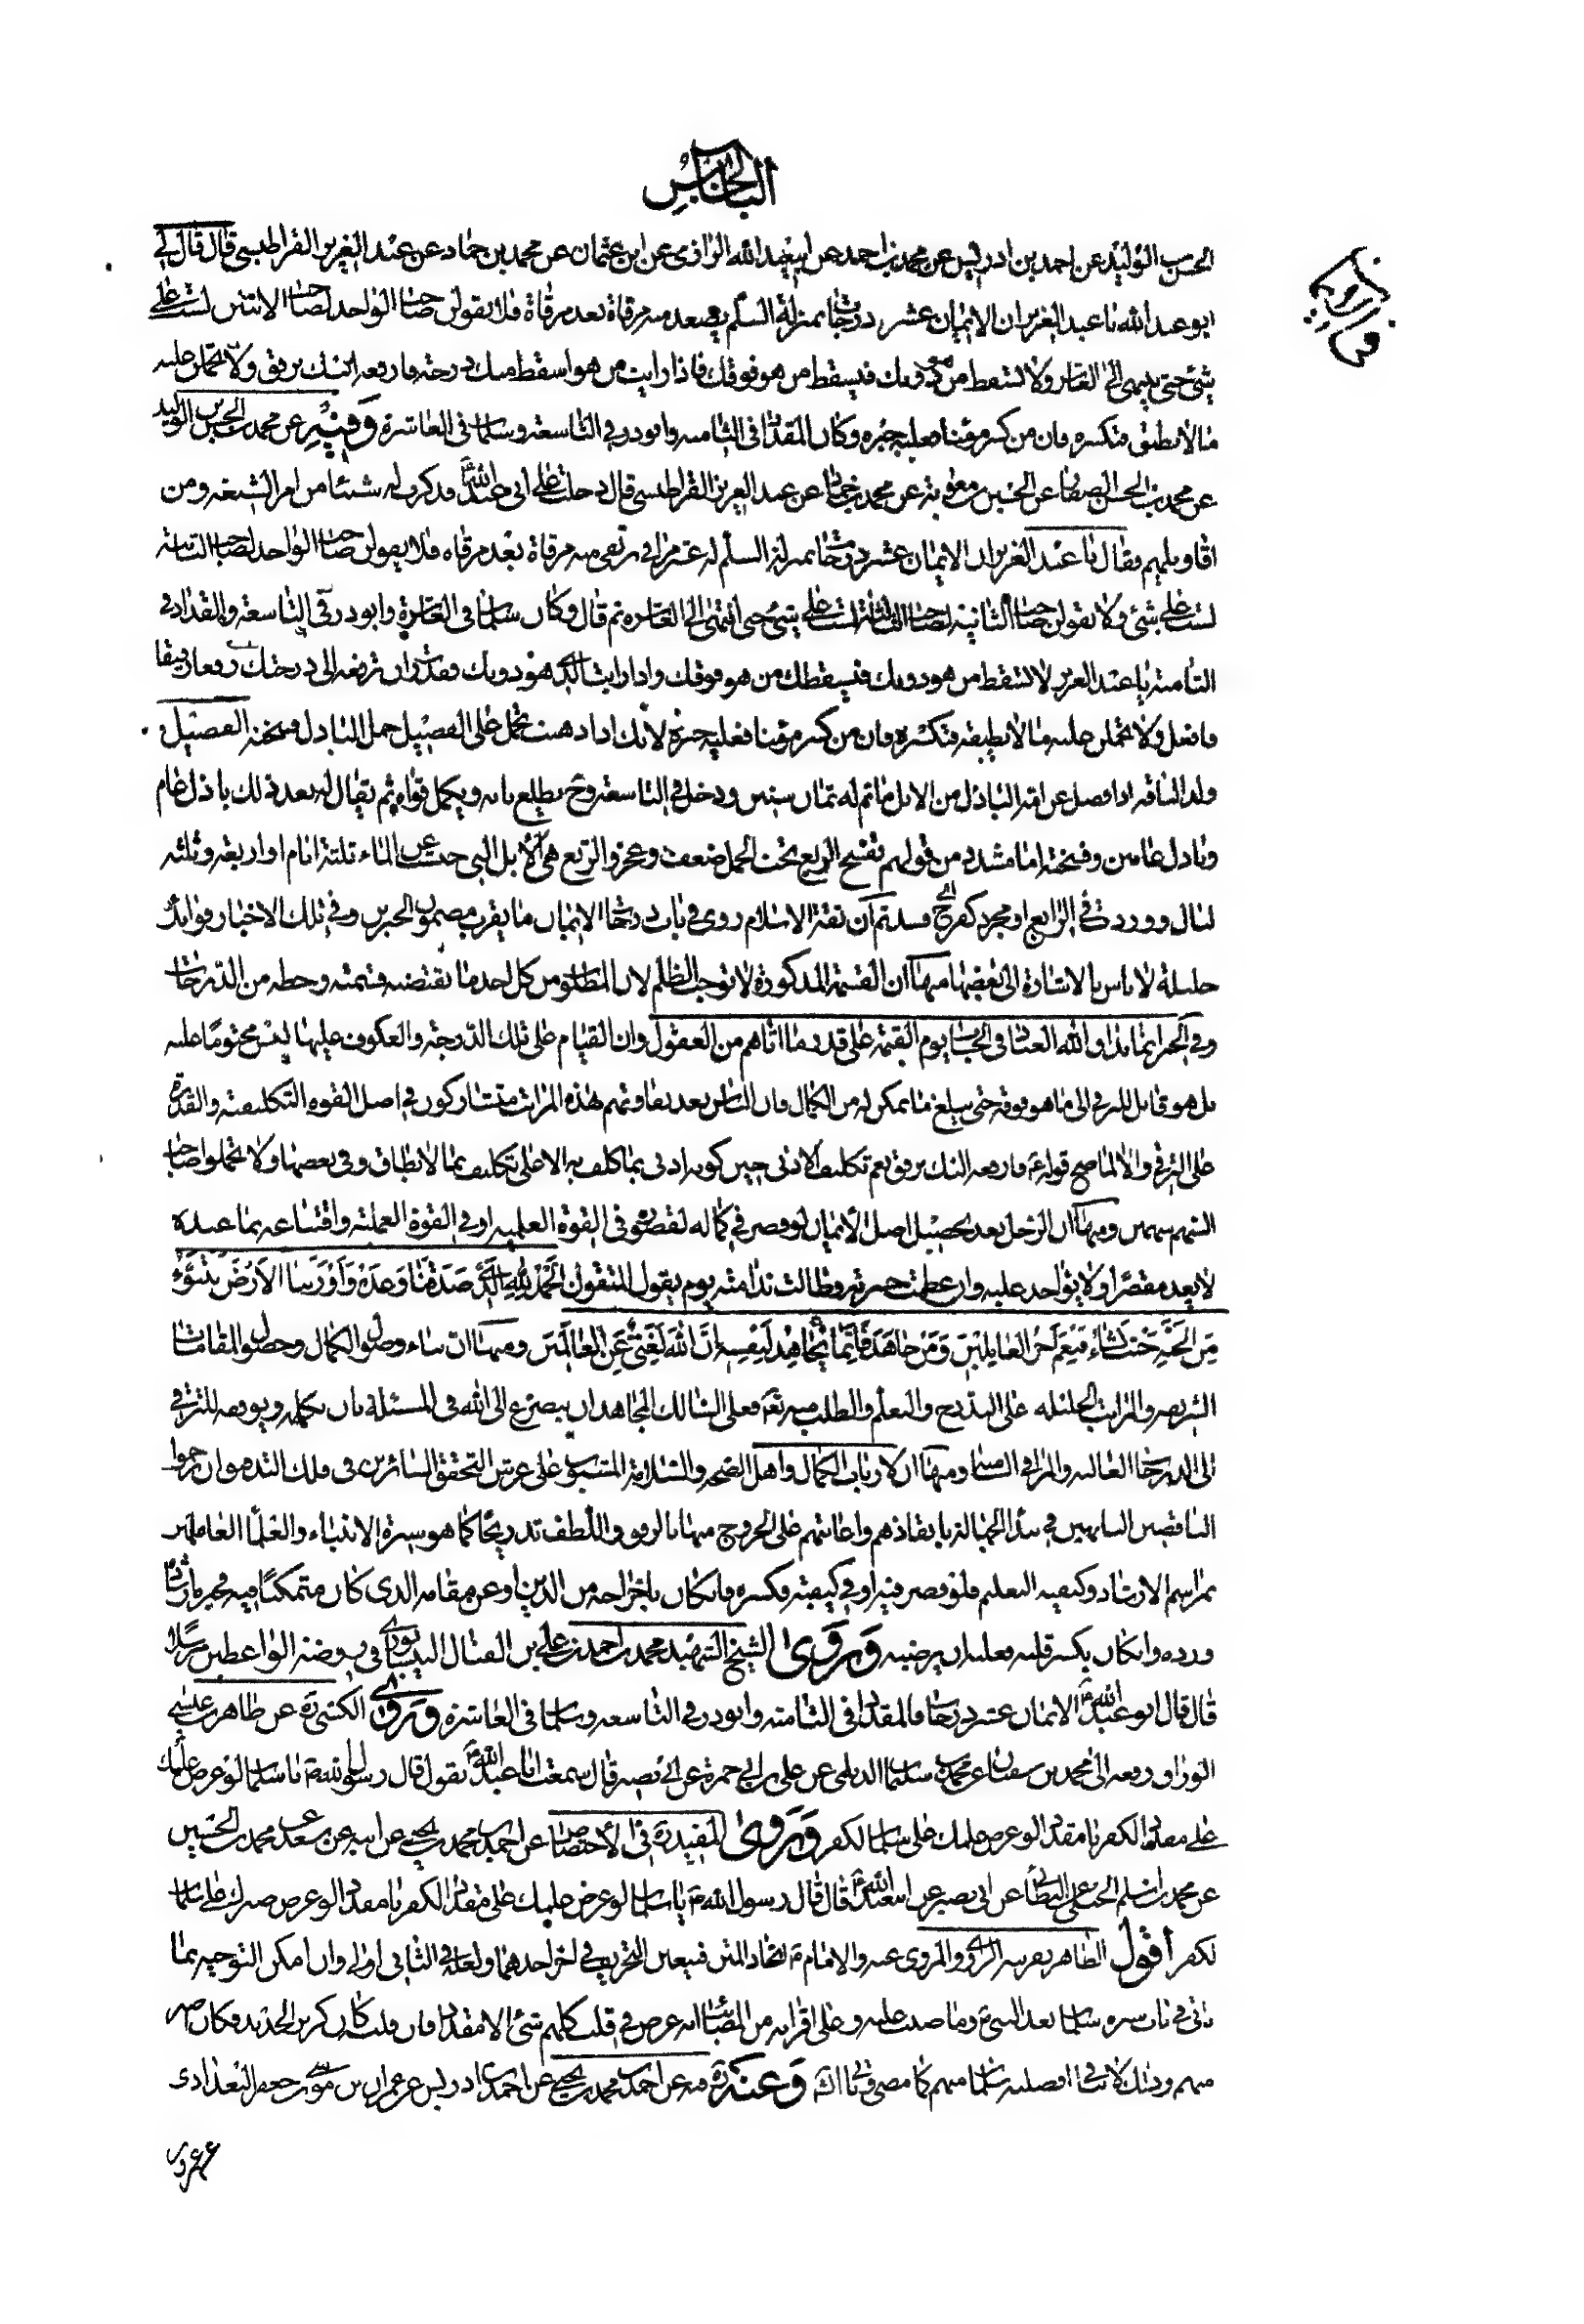 الباب الخامس
الحسن بن الوليد عن احمد بن ادريس عن محمد بن احمد عن ابي عبد الله الرازي عن ابن عثمان عن محمد بن حماد عن عبد العزيز القراطيسي قال قال لي
ابو عبد الله يا عبد العزيز ان الايمان عشر درجات بمنزلة السلم يصعد منه مرقاة بعد مرقاة فلا يقولن صاحب الواحد لصاحب الاثنين لست على
شئ حتى ينتهي الى العاشر ولا تسقط من هو دونك فيسقط من هو فوقك فاذا رايت من هو اسفل منك درجة فارفعه اليك برفق ولا تحملن عليه
ما لا يطيق فتكسره فان من كسر مؤمنا فعليه جبره وكان المقداد في الثامنة وابوذر في التاسعة وسلمان في العاشرة وفيه عن محمد بن الحسن بن الوليد
عن محمد بن الحسن الصفار عن الحسن بن معوية عن محمد بن حماد عن عبد العزيز القراطيسي قال دخلت على ابي عبد الله فذكرت له شيئا من امر الشيعة ومن
اقاويلهم فقال يا عبد العزيز الايمان عشر درجات بمنزلة السلم له عشر مراقي ترتقى منه مرقاة بعد مرقاة فلا يقولن صاحب الواحد لصاحب الثانية
لست على شئ ولا يقولن صاحب الثانية لصاحب الثالثة لست على شئ حتى انتهى الى العاشرة ثم قال وكان سلمان في العاشرة وابوذر في التاسعة والمقداد في
الثامنة يا عبد العزيز لا تسقط من هو دونك فيسقطك من هو فوقك واذا رايت الذي هو دونك فقدرت ان ترفعه الى درجتك رفعا رفيقا
فافعل ولا تحملن عليه ما لا يطيقه فتكسره فان من كسر مؤمنا فعليه جبره لانك اذا ذهبت تحمل على الفصيل حمل البازل فسخته الفصيل
ولد الناقة اذا فصل عن امه البازل من الابل ما تم له ثمان سنين ودخل في التاسعة وح يطلع نابه ويكمل قواه ثم يقال له بعد ذلك بازل عام
وبازل عامين وفسخته اما مشدد من قولهم تفسخ الربع تحت الحمل ضعف وعجز والربع هي الابل التي حبست عن الماء ثلثة ايام او اربعة وثلثة
ليال ووردت في الرابع او مجرد كفرح ان ثقة الاسلام روى في باب درجات الايمان ما يقرب مضمون الخبرين وفي تلك الاخبار فوائد
جليلة لا باس بالاشارة الى بعضها منها ان القسمة المذكورة لا توجب الظلم لان المطلوب من كل احد ما يقتضيه قسمته وحظه من الدرجات
وفي الخبر انما يداق الله العباد في الحساب يوم القيمة على قدر ما اتاهم من العقول وان القيام على تلك الدرجة والعكوف عليها ليس محتوما عليه
بل هو قابل للترقي الى ما هو فوقه حتى يبلغ ما يمكن له من الكمال فان الناس بعد تفاوتهم بهذه المراتب متشاركون في اصل القوة التكليفية والقدرة
على الترقي والا لما صح قوله ع فارفعه اليك برفق نعم تكليف الادنى حين كونه ادنى بما كلف به الاعلى تكليف بما لا يطاق وفي بعضها ولا تحملوا صاحب
السهم سهمين ومنها ان الرجل بعد تحصيل اصل الايمان لو قصر في كماله لقصور في القوة العلمية او في القوة العملية واقتناعه بما عنده
لا يعد مقصرا ولا يؤاخذ عليه وان عظمت حسرته وطالت ندامته يوم يقول المتقون الحمد لله الذي صدقنا وعده واورثنا الارض نتبوء
من الجنة حيث نشاء فنعم اجر العاملين ومن جاهد فانما يجاهد لنفسه ان الله لغني عن العالمين ومنها ان بناء وصول الكمال وحصول المقامات
الشريفة والمراتب الجليلة على التدريج والتعلم والطلب منه تعالى فعلى السالك المجاهد ان يتضرع الى الله في المسئلة بان يكمله ويوفقه للترقي
الى الدرجات العالية والمراقي السامية ومنها ان لارباب الكمال واهل الصحة والسلامة المستوين على عرش التحقق السائرين في فلك التدبر ان يرحموا
الناقصين التائهين في بيداء الجهالة بانقاذهم واعانتهم على الخروج منها بالرفق واللطف تدريجا كما هو سيرة الانبياء والعلماء العاملين
بمراسم الارشاد وكيفية التعليم فلو قصر فيه او في كيفيته فكسره فان كان باخراجه من الدين او عن مقامه الذي كان متمكنا فيه فجبره بارشاده
ورده وان كان بكسر قلبه فعليه ان يرضيه وروى الشيخ الشهيد محمد بن احمد بن علي بن الفتال النيسابوري في روضة الواعظين مرسلا
قال قال ابو عبد الله الايمان عشر درجات فالمقداد في الثامنة وابوذر في التاسعة وسلمان في العاشرة وروى الكشي ره عن طاهر بن عيسى
الوراق رفعه الى محمد بن سفيان عن محمد بن سليمان الديلمي عن علي بن ابي حمزة عن ابي بصير قال سمعت ابا عبد الله يقول قال رسول الله ص يا سلمان لو عرض علمك
على مقداد لكفر يا مقداد لو عرض علمك على سلمان لكفر وروى المفيد ره في الاختصاص عن احمد بن محمد بن يحيى عن ابيه عن سعد عن محمد بن الحسين
عن محمد بن اسلم الجبلي عن علي البطائني عن ابي بصير عن ابي عبد الله قال قال رسول الله ص يا سلمان لو عرض علمك على مقداد لكفر يا مقداد لو عرض صبرك على سلمان
لكفر اقول الظاهر بقرينة الراوي والمروي عنه والامام ع اتحاد المتن فيتعين التحريف في اخر احدهما ولعله في الثاني اولى وان امكن التوجيه بما
ياتي في باب سيرة سلمان بعد النبي ص وما صبت عليه وعلى اقرانه من المصائب انه عرض في قلب كلهم شئ الا مقداد فان قلبه كان كزبر الحديد فكان اصبر
منهم وذلك لا ينافي افضلية سلمان منهم كما مضى وياتي وعنه ره فيه عن احمد بن محمد بن يحيى عن احمد بن ادريس عن عمران بن موسى بن جعفر البغدادي